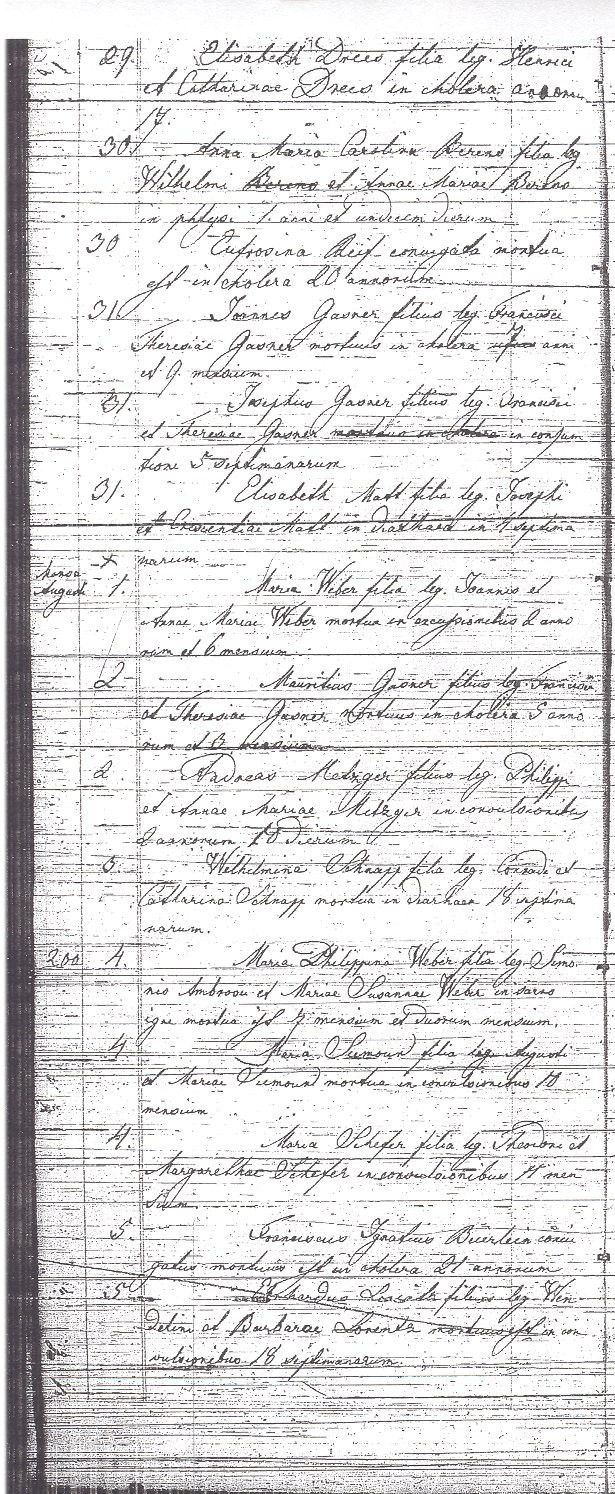 29. Elisabeth Drees filia leg. Henrici
et Catharinae Drees in cholera annorum
17.
30. Anna Maria Carolina Berens filia leg
Wilhelmi Berens et Annae Mariae Berens
in phtysi 1. anni et undecim dierum
30 Eufrosina Reif conjugata mortua
est in cholera 20 annorum
31 Joannes Gasner filius leg. Francisci
Theresiae Gasner mortuus in cholera anni
et 9. mensium.
31. Josephus Gasner filius leg. Francisci
et Theresiae Gasner mortuus in cholera in consum
tione 5 septimanarum
31. Elisabeth Matt filia leg. Josephi
et Crescentiae Matt in diarhaea in 7 septima
narum
Augusti 1. Maria Weber filia leg. Joannis et
Annae Mariae Weber mortua in 2 anno
rum et 6 mensium
2 Mauritius Gasner filius leg. Francisci
et Theresiae Gasner mortuus in cholera 5 anno
rum et 3 mensium
2. Andreas Metzger filius leg. Philippi
et Annae Mariae Metzger in convulsionibus
2 annorum 10 dierum
3. Wilhelmina Schnapp filia leg. Conradi et
Catharina Schnapp mortua in diarhaea 18 septima
narum.
200 4. Maria Philippina Weber filia leg. Simo
nis Ambrosii et Mariae Susannae Weber in sacro
igne mortua est 7 mensium et duorum mensium.
4 Maria Siemound filia leg. Augusti
et Mariae Siemound mortua in convulsionibus 10
mensium
4. Maria Schefer filia leg. Theodori et
Margarethae Schefer in convulsionibus 11 men
sium
5. Franciscus Ignatius Buerlein conju
gatus mortuus est in cholera 21 annorum
5 Lorentz filius leg Wen
delini et Barbarae Lorentz mortuus est in con
vulsionibus 18 septimanarum.